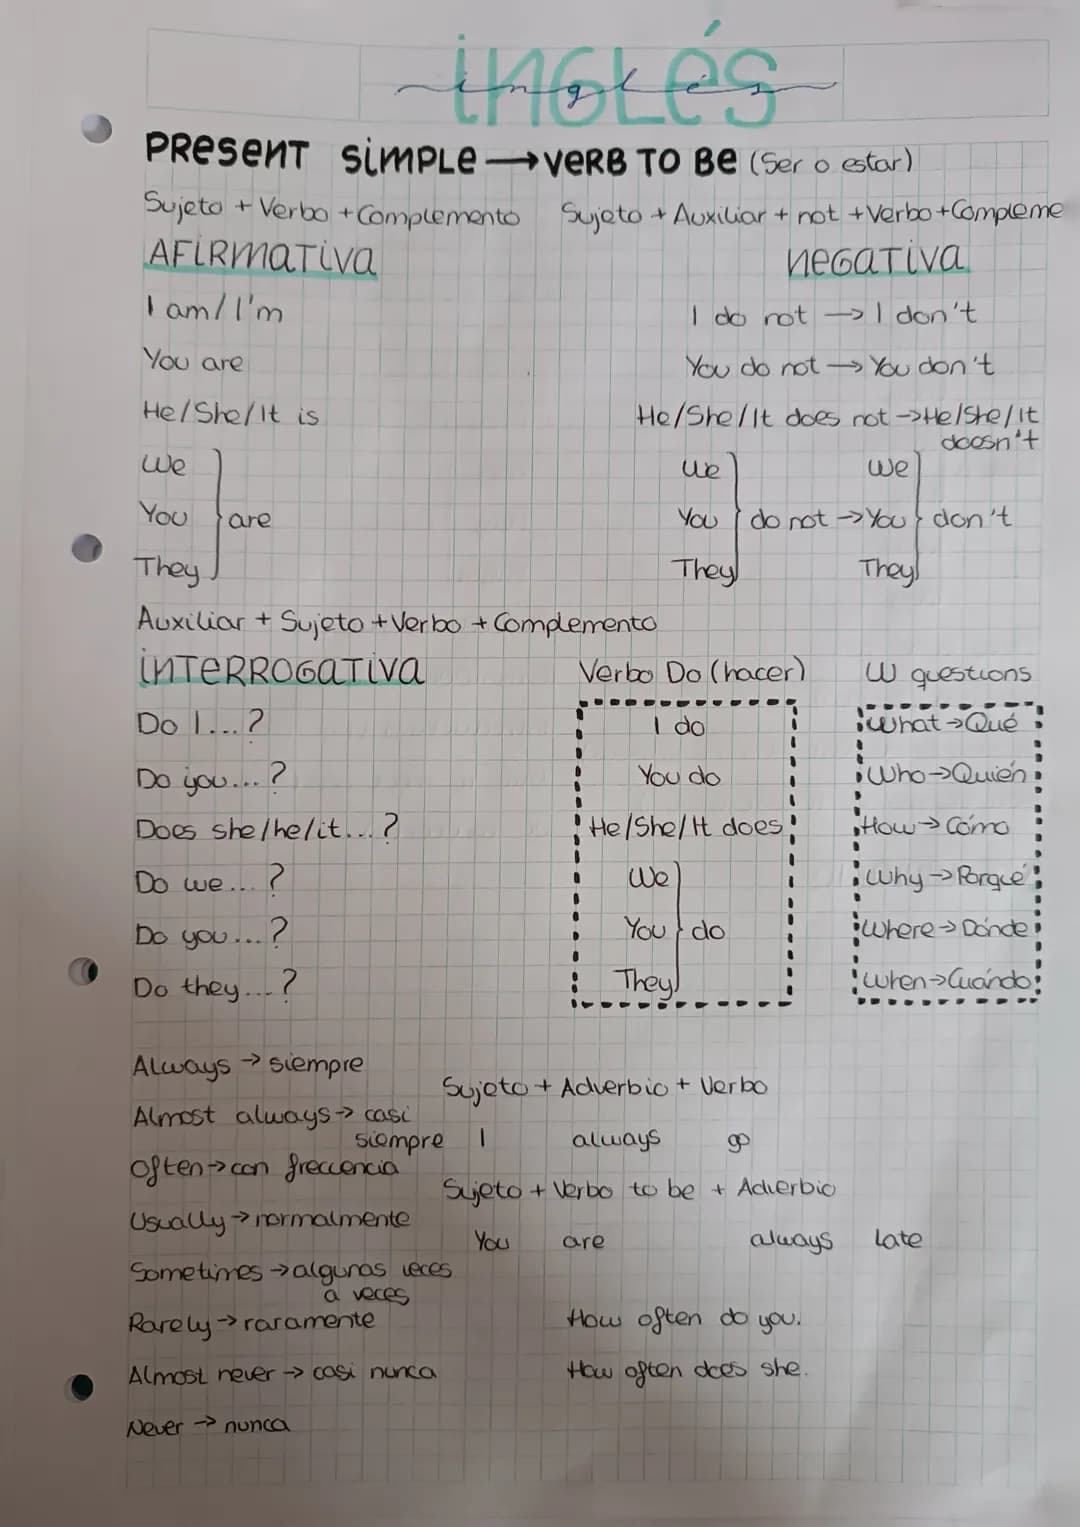 inglés
inglés
PRESENT SIMPLE → VERB TO BE (Ser o estar)
Sujeto + Verbo + Complemento Sujeto + Auxiliar + not + Verbo + Compleme
AFIRMATIVA NEGATIVA
I am / I'm I do not → I don't
You are You do not → You don't
He/She/It is He/She/It does not → He/She/It
doesn't
We We We
You are You do not → You don't
They They They
Auxiliar + Sujeto + Verbo + Complemento
INTERROGATIVA Verbo Do (hacer) W questions
Do I...? I do What → Qué
Do you...? You do Who → Quién
Does she/he/it...? He/She/It does How → Cómo
Do we...? We Why → Porqué
Do you...? You do Where → Dónde
Do they...? They When → Cuándo
Always → siempre
Sujeto + Adverbio + Verbo
Almost always → casi
siempre I always go
Often → con frecuencia
Sujeto + Verbo to be + Adverbio
Usually → normalmente
You are always late
Sometimes → algunas veces
a veces
Rarely → raramente How often do you.
Almost never → casi nunca How often does she.
Never → nunca